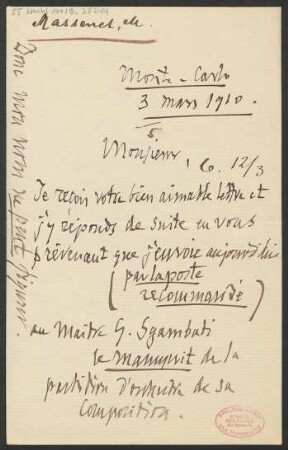 Massenet, M.
Monte-Carlo
3 mars 1910.
Monsieur,
6. 12/3
Je reçois votre bien aimable lettre et
j'y réponds de suite en vous
prévenant que j'envoie aujourd'hui
(par la poste
recommandé)
au Maître G. Sgambati
le manuscrit de la
partition d'orchestre de sa
Composition.
Donc mon nom ne peut figurer.